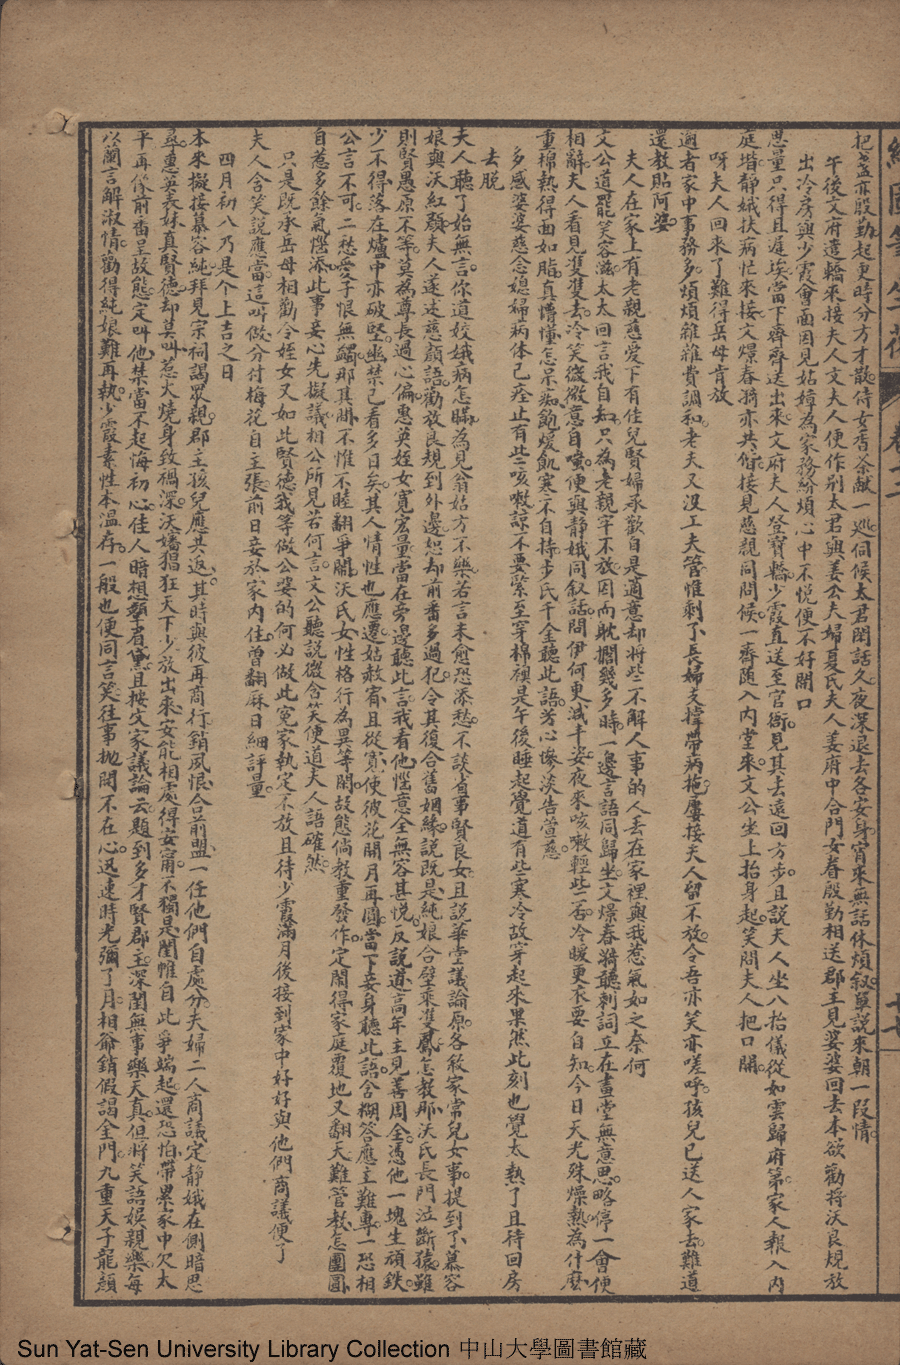 把盞亦殷勤起更時分方才散侍女香茶献一廵伺候太君閑話久夜深退去各安身宵來無話休煩叙單說來朝一段情
午後文府遣轎來接夫人文夫人便作别太君與姜公夫婦夏氏夫人姜府中合門女眷殷勤相送郡主見婆婆回去本欲勸將沃良規放
出冷房與少霞會面因見姑嫜為家務紛煩心中不悦便不好開口
思量只得且遲挨當下齊齊送出來文府夫人登寳轎少霞直送至官衙見其去遠回方步且說夫人坐八抬儀從如雲歸府第家人報入内
庭堦静娥扶病忙來接文㬌春旖亦共偕接見慈親同問候一齊随入内堂來文公坐上抬身起笑問夫人把口開
呀夫人回來了難得岳母肯放
適者家中事務多煩煩雜雜費調和老夫又没工夫管惟剩了長婦支撐帶病拖屢接夫人留不放令吾亦笑亦嗟呼孩兒已送人家去難道
還教貼阿婆
夫人在家上有老親慈愛下有佳兒賢婦承歡自是適意却將些不解人事的人丢在家裡與我惹氣如之奈何
文公道罷笑容滋太太回言我自知只為老親牢不放因而躭擱幾多時一邊言語同歸坐文㬌春旖聽刺詞立在畫堂無意思略停一會便
相辭夫人看見雙雙去冷笑微微意自嗤便與静娥同叙話問伊何更减丰姿夜來咳嗽輕些否冷暖更衣要自知今日天光殊燥熱為什麽
重棉熱得面如脂真懵懂怎呆痴飽煖飢寒不自持步氏千金聽此語芳心慘淡告萱慈
多感婆婆慈念媳婦病体已痊止有些咳嗽諒不要緊至穿棉襖是午後睡起覺道有些寒冷故穿起來果然此刻也覺太熱了且待回房
去脱
夫人聽了始無言你道姣娥病怎瞞為見翁姑方不樂若言未愈恐添愁不談省事賢良女且說華堂議論原各敘家常兒女事提到了慕容
娘與沃紅顏夫人遂述慈顏語勸放良規到外邊恕却前番多過犯令其復合舊姻緣說既是純娘合璧乘雙鳳怎教那沃氏長門泣斷猿雖
則賢愚原不等莫為尊長過心偏惠英姪女寛宏量當在旁邊聽此言我看他惺意全無容甚悦反說道高年主見善周全憑他一塊生頑鉄
少不得落在爐中亦破堅幽禁已看多日矣其人情性也應遷姑赦宥且從寛使彼花開月再圓當下妾身聽此語含糊答應主難專一恐相
公言不可二愁愛子恨無蠲那其間不惟不睦翻爭閙沃氏女性格行為異等閑故態倘教重發作定閙得家庭覆地又翻天難管教怎團圓
自惹多餘氣惱添此事妾心先擬議相公所見若何言文公聽說微含笑便道夫人語確然
只是既承岳母相勸令姪女又如此賢德我等做公婆的何必做此寃家執定不放且待少霞滿月後接到家中好好與他們商議便了
夫人含笑說應當這叫做分付梅花自主張前日妾於家内住曾翻厤日細評量
四月初八乃是个上吉之日
本來擬接慕容純拜見宗祠謁眾親郡主孩兒應共返其時與彼再商行銷夙恨合前盟一任他們自處分夫婦二人商議定静娥在側暗思
尋蕙英表妹真賢德却甚叫惹火燒身致禍深沃嬌猖狂天下少放出來安能相處得安甯不獨是閨帷自此爭端起還恐怕帶累家中欠太
平再像前番呈故態定叫他禁當不起悔初心佳人暗想顰眉黛且按文家議論云題到多才賢郡主深閨無事樂天真但將笑語娱親樂每
以蘭言解淑情勸得純娘難再執少霞素性本溫存一般也便同言笑往事抛開不在心迅速時光彌了月相爺銷假謁金門九重天子龍顏
Sun Yat-Sen University Library Collection 中山大學圖書館藏